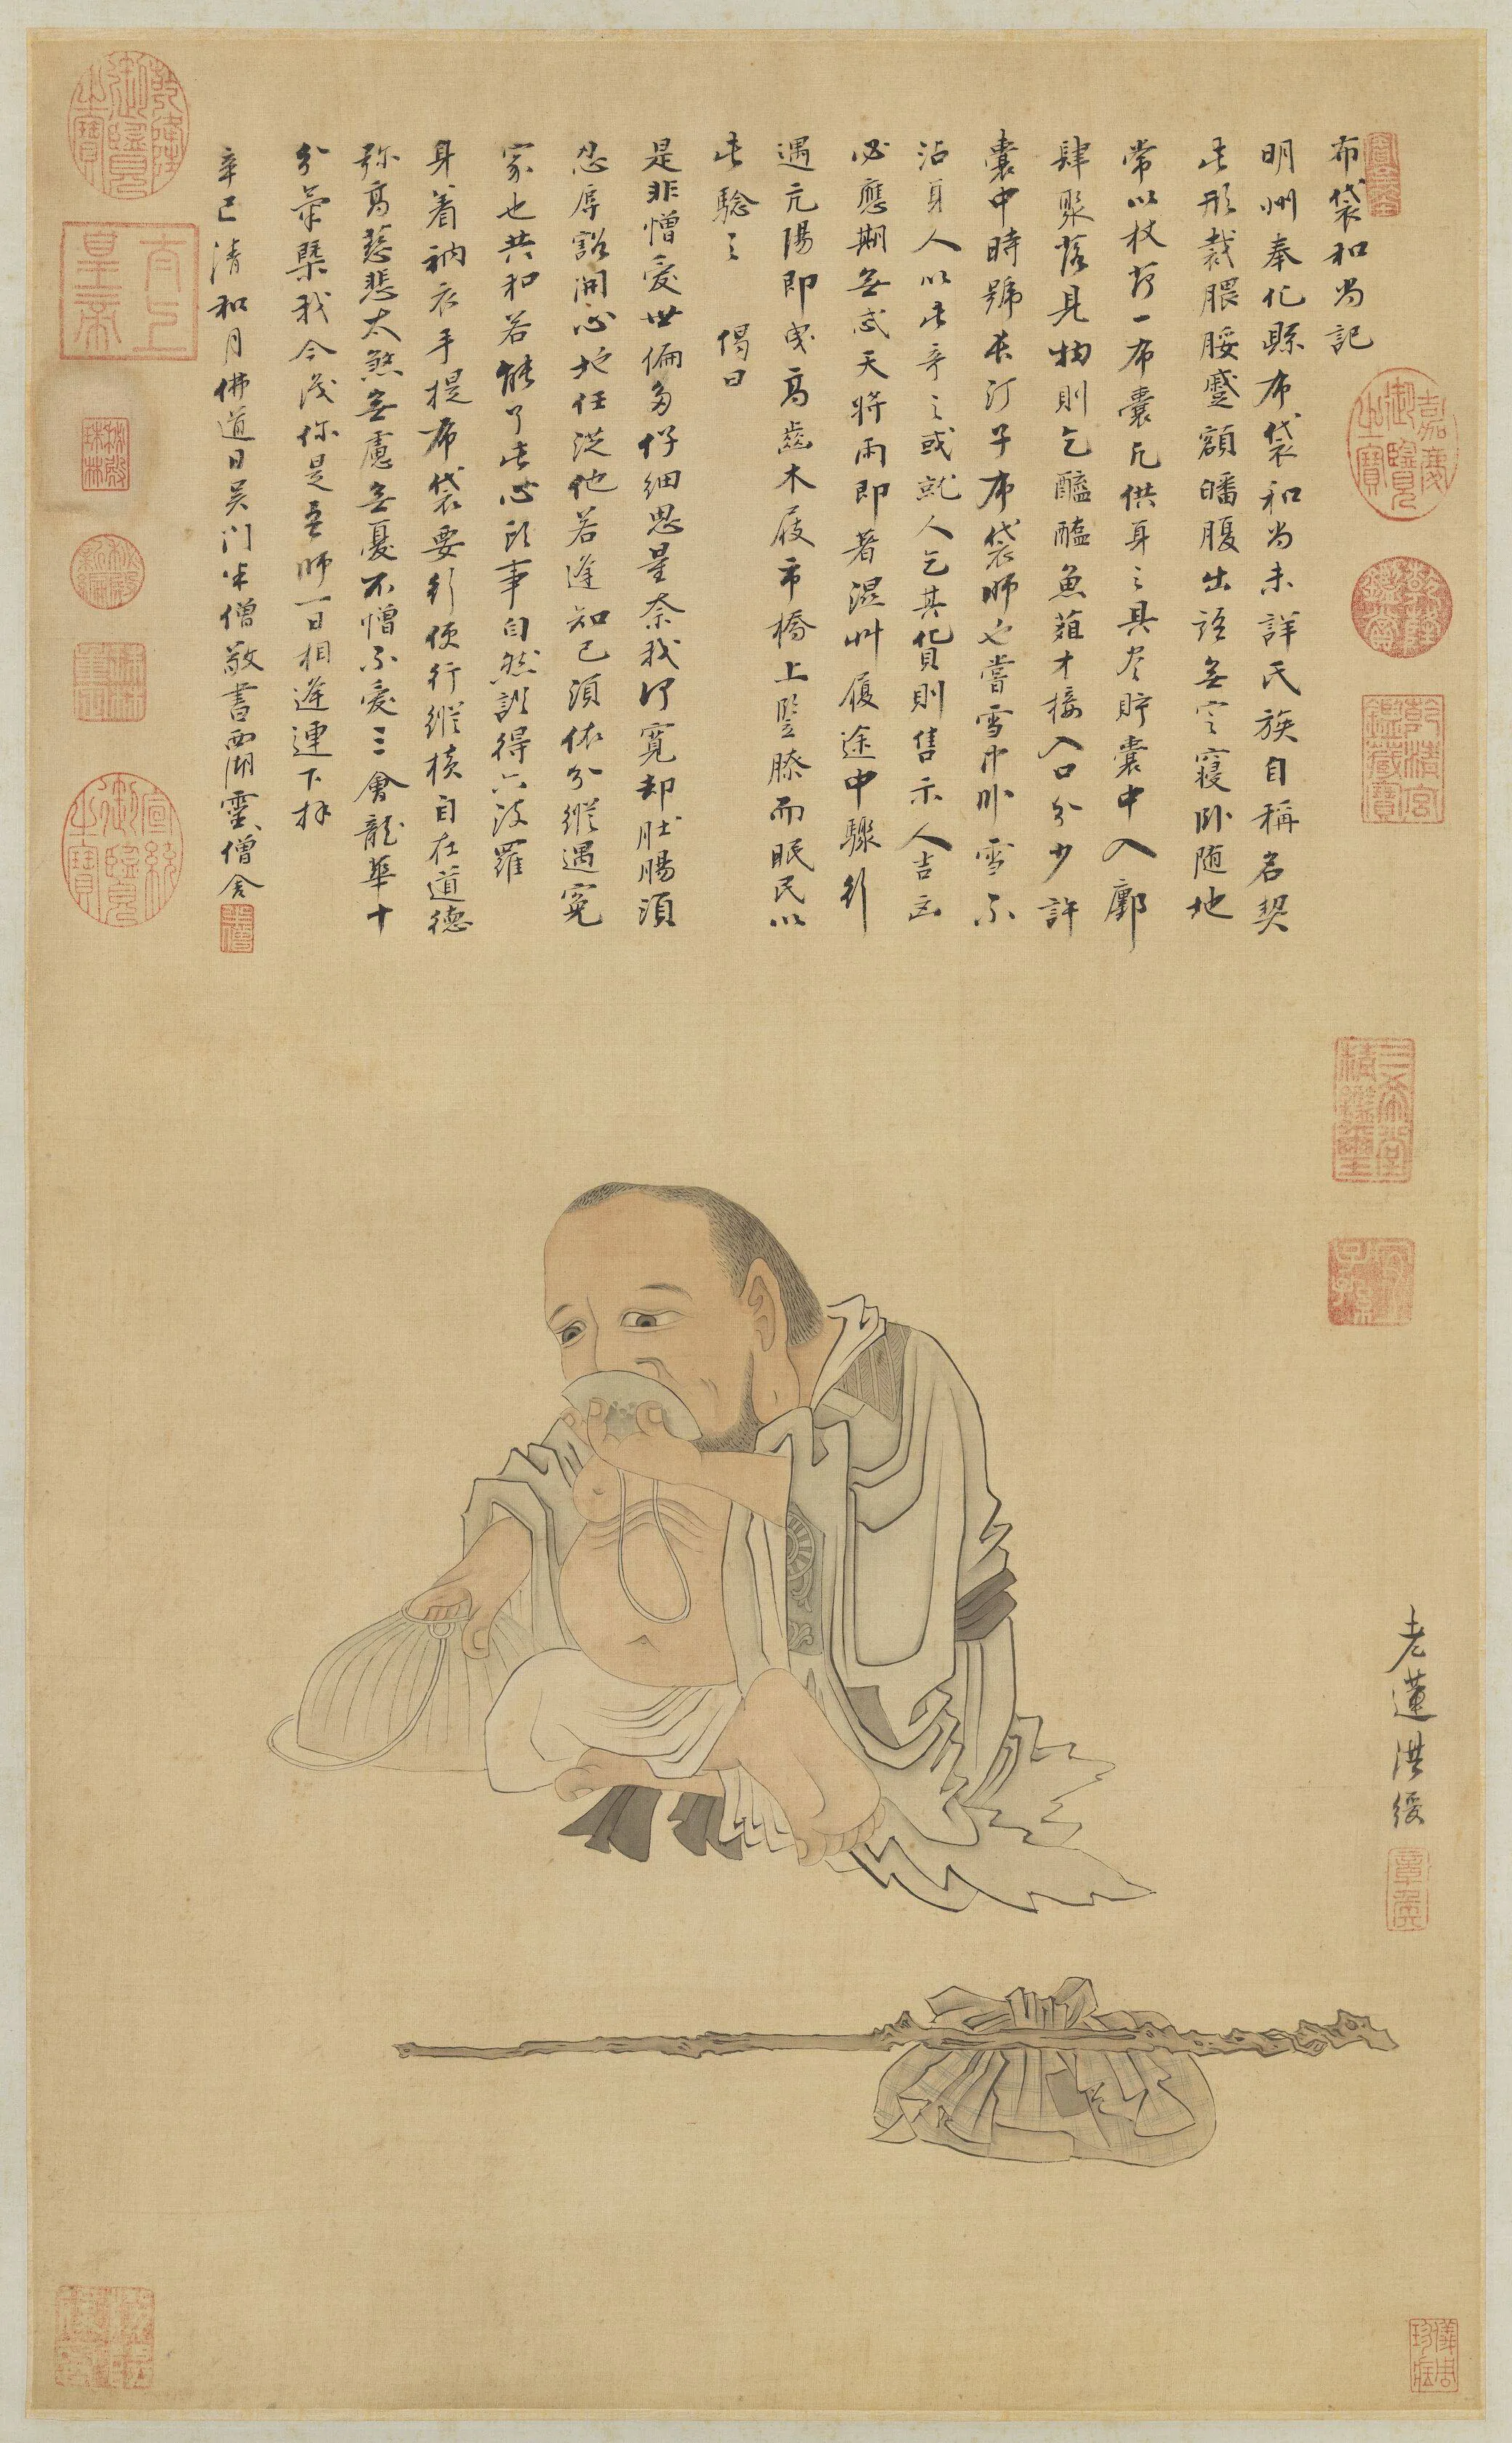 布袋和尚記
明州奉化縣布袋和尚未詳氏族自稱名契
此形裁腲脮蹙額皤腹出語無定寢卧随地
常以杖荷一布囊凡供身之具尽貯囊中入鄽
肆聚落見物則乞醯醢魚葅才接入口分少許
囊中時號長汀子布袋師也嘗雪中卧雪不
沾身人以此奇之或就人乞其貨則售示人吉凶
必應期無忒天将雨即著濕艸履途中驟行
遇亢陽即曳高齒木屐市橋上竪膝而眠民以
此驗之 偈曰
是非憎愛世徧多仔細思量奈我何寛却肚腸須
忍辱豁開心地任從他若逢知己須依分縱遇冤
家也共和若能了此心頭事自然證得六波羅
身着衲衣手提布袋要行便行縱横自在道德
弥高慈悲太煞無慮無憂不憎不愛三會龍華十
分
我今識你是吾師一日相逢連下拜
辛巳清和月佛道日吴门半僧敬書西湖靈僧舍
半僧
老蓮洪綬
章侯
乾隆御覽之寶
太上皇帝
宣統御覽之寶
嘉慶御覽之寶
乾隆鑑賞
乾清宮鑑藏寶
三希堂精鑑璽
宜子孫